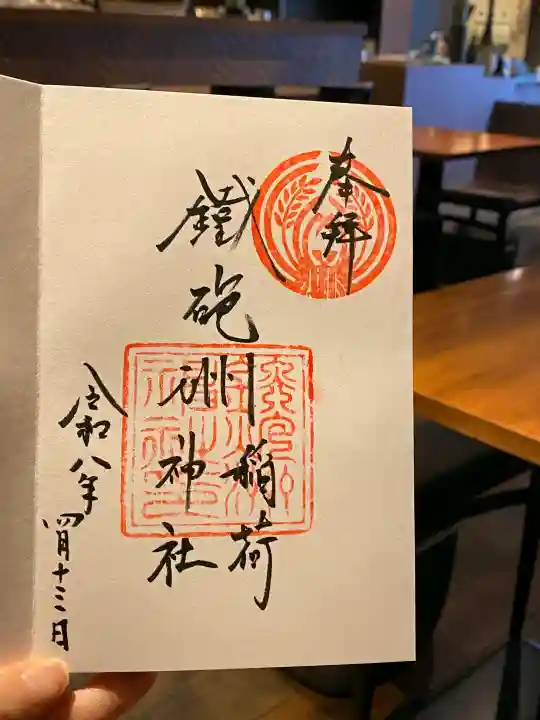 奉拝
鐵砲洲稲荷
神社
令和八年
四月十三日